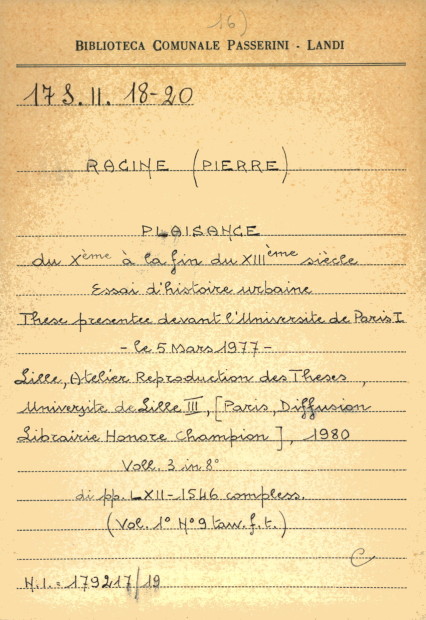 16)
BIBLIOTECA COMUNALE PASSERINI - LANDI
17 S. II. 18-20
RACINE (PIERRE)
PLAISANCE
du Xème à la fin du XIIIème siècle
Essai d'histoire urbaine
These presentee devant l'Universite de Paris I
- le 5 Mars 1977 -
Lille, Atelier Reproduction des Theses,
Universite de Lille III, [Paris, Diffusion
Librairie Honore Champion], 1980
Voll. 3 in 8°
di pp. LXII-1546 compless.
(Vol. 1° N° 9 tavv. f. t.)
C
N.I.: 179217/19